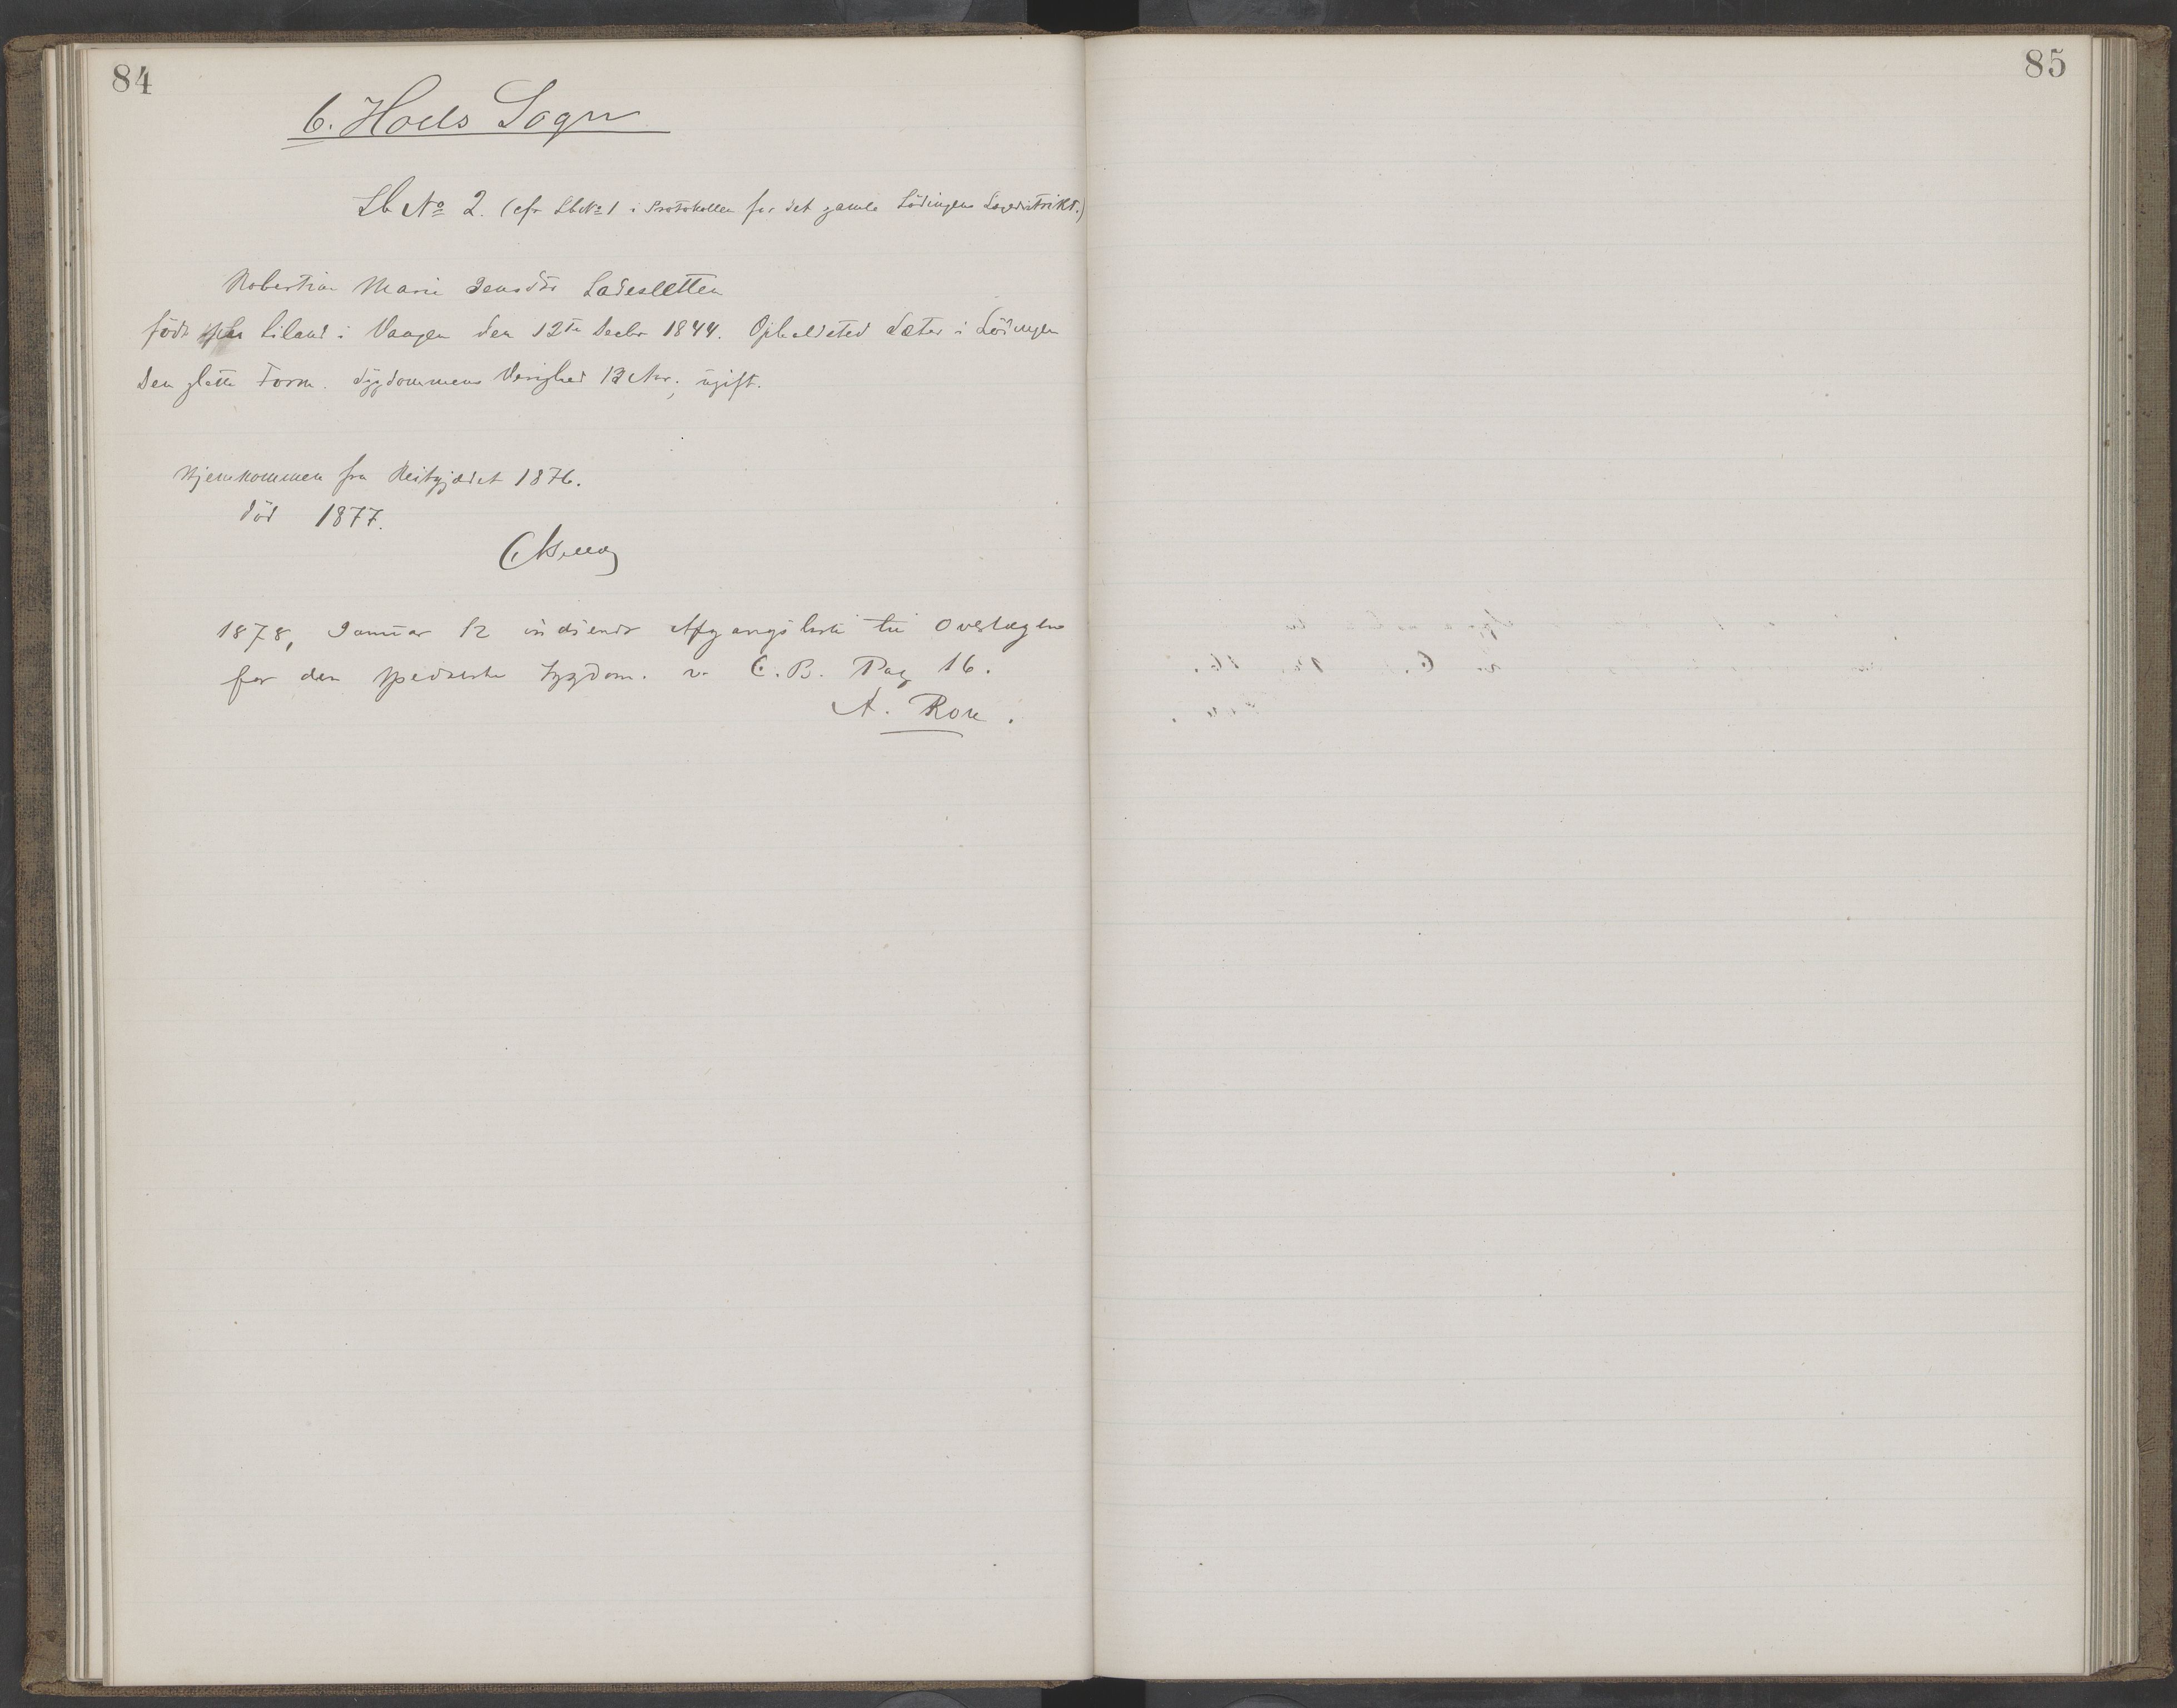 84
85
6. Hoels Sogn
Lb No 2. (cfr Lb No 1 i Protokollen for det gamle Lödingens Lægedistrikt.)
Robertine Marie Jensdtr Ladesletten
född Liland i Vaagen den 12te Decbr 1844. Opholdsted Sæter i Lödingen
Den glatte Form. Sygdommens Varighed 13 Aar; ugift.
Hjemkommen fra Reitgjædet 1876.
död 1877.
1878, Januar 12 indsendt Afgangsliste til Overlægen
for den spedalske Sygdom. v. C.B. Pag 16.
A. Rore.